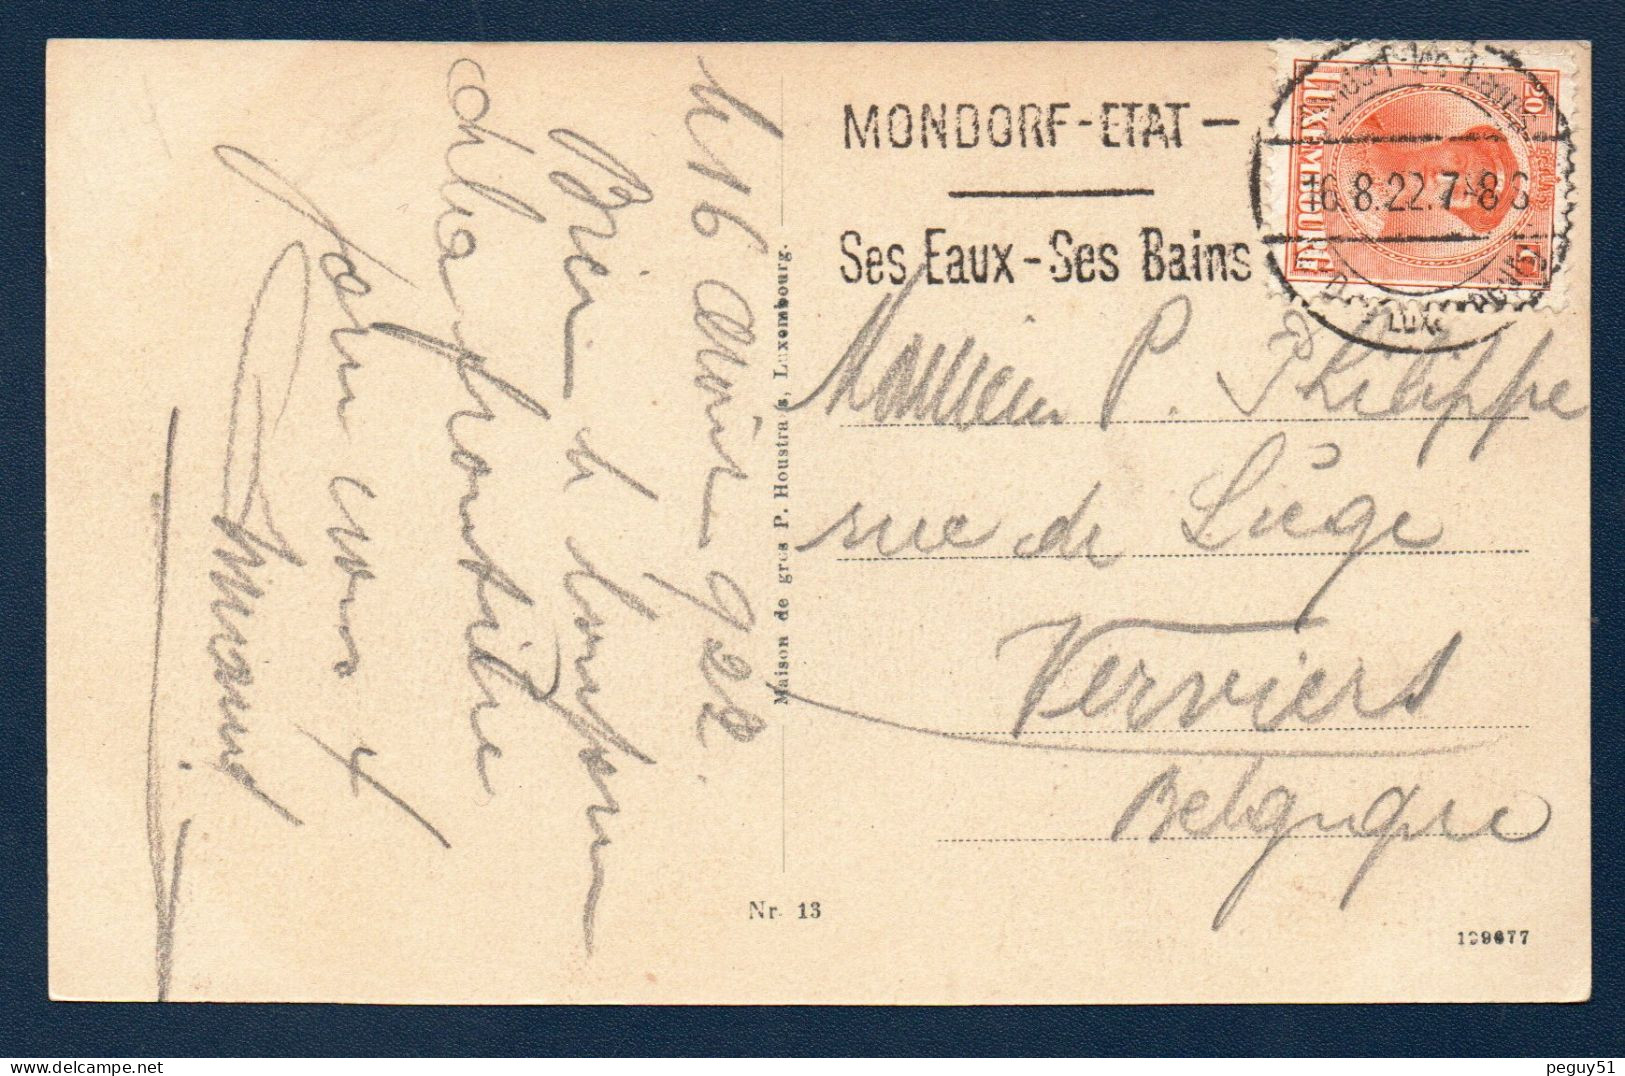 le 16 Août 922.
Bien le bonjour
de la frontière
Armand
Maison de gros P. Houstraas, Luxembourg.
Nr. 13
MONDORF-ETAT-
Ses Eaux-Ses Bains
LUXEMBOURG
20 C
16.8.22.7-8
Monsieur P. Philippe
rue de Liège
Verviers
Belgique
109677
peguy51